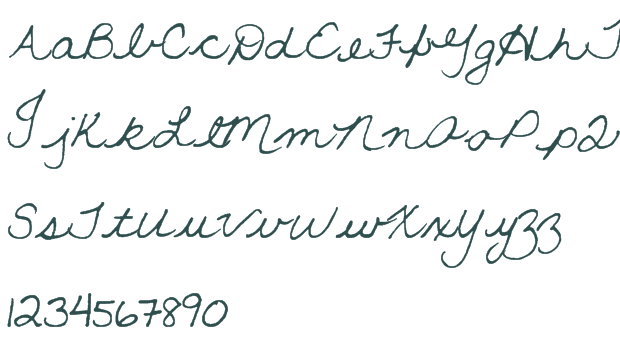 AaBbCcDdEeFfGgHhI
JjKkLlMmNnOoPpQ
SsTtUuVvWwXxYyZz
1234567890